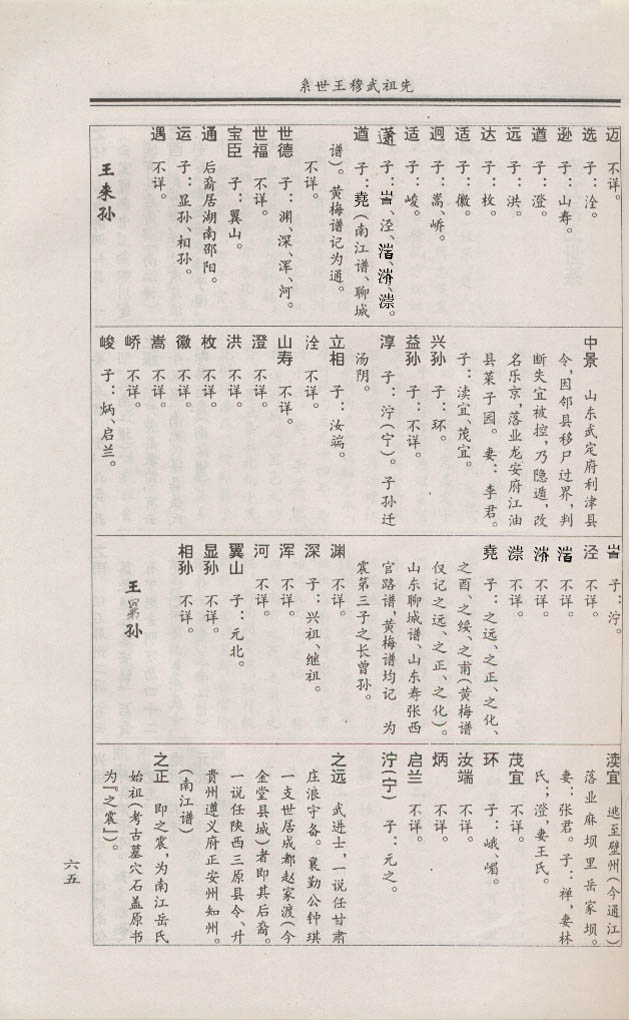 先祖武穆王世系
迈 不详。
选 子：洤。
逊 子：山寿。
遒 子：澄。
远 子：洪。
达 子：枚。
适 子：徽。
迥 子：嵩、峤。
适 子：峻。
子：旹、泾、湝、泲、漴。
道 子：尭（南江谱、聊城
谱）。黄梅谱记为通。
不详。
世德 子：渊、深、浑、河。
世福 不详。
宝臣 子：翼山。
通 后裔居湖南邵阳。
运 子：显孙、相孙。
遇 不详。
王来孙
中景 山东武定府利津县
令，因邻县移尸过界，判
断失宜被控，乃隐遁，改
名乐京，落业龙安府江油
县菜子园。妻：李君。
子：渎宜、茂宜。
兴孙 子：环。
益孙 子：不详。
淳 子：泞（宁）。子孙迁
汤阴。
立相 子：汝端。
洤 不详。
山寿 不详。
澄 不详。
洪 不详。
枚 不详。
徽 不详。
嵩 不详。
峤 不详。
峻 子：炳、启兰。
旹 子：泞。
泾 不详。
湝 不详。
泲 不详。
漴 不详。
尭 子：之远、之正、之化、
之酉、之绥、之甫（黄梅谱
仅记之远、之正、之化）。
山东聊城谱、山东寿张西
官路谱，黄梅谱均记 为
震第三子之长曾孙。
渊 不详。
深 子：兴祖、继祖。
浑 不详。
河 不详。
翼山 子：元北。
显孙 不详。
相孙 不详。
王晜孙
渎宜 逃至壁州（今通江）
落业麻坝里岳家坝。
妻：张君。子：禅，妻林
氏；澄，妻王氏。
茂宜 不详。
环 子：峨、嵋。
汝端 不详。
炳 不详。
启兰 不详。
泞（宁） 子：元之。
之远 武进士，一说任甘肃
庄浪守备。襄勤公钟琪
一支世居成都赵家渡（今
金堂县城）者即其后裔。
一说任陕西三原县令、升
贵州遵义府正安州知州。
（南江谱）
之正 即之震，为南江岳氏
始祖（考古墓穴石盖原书
为『之震』）。
六五